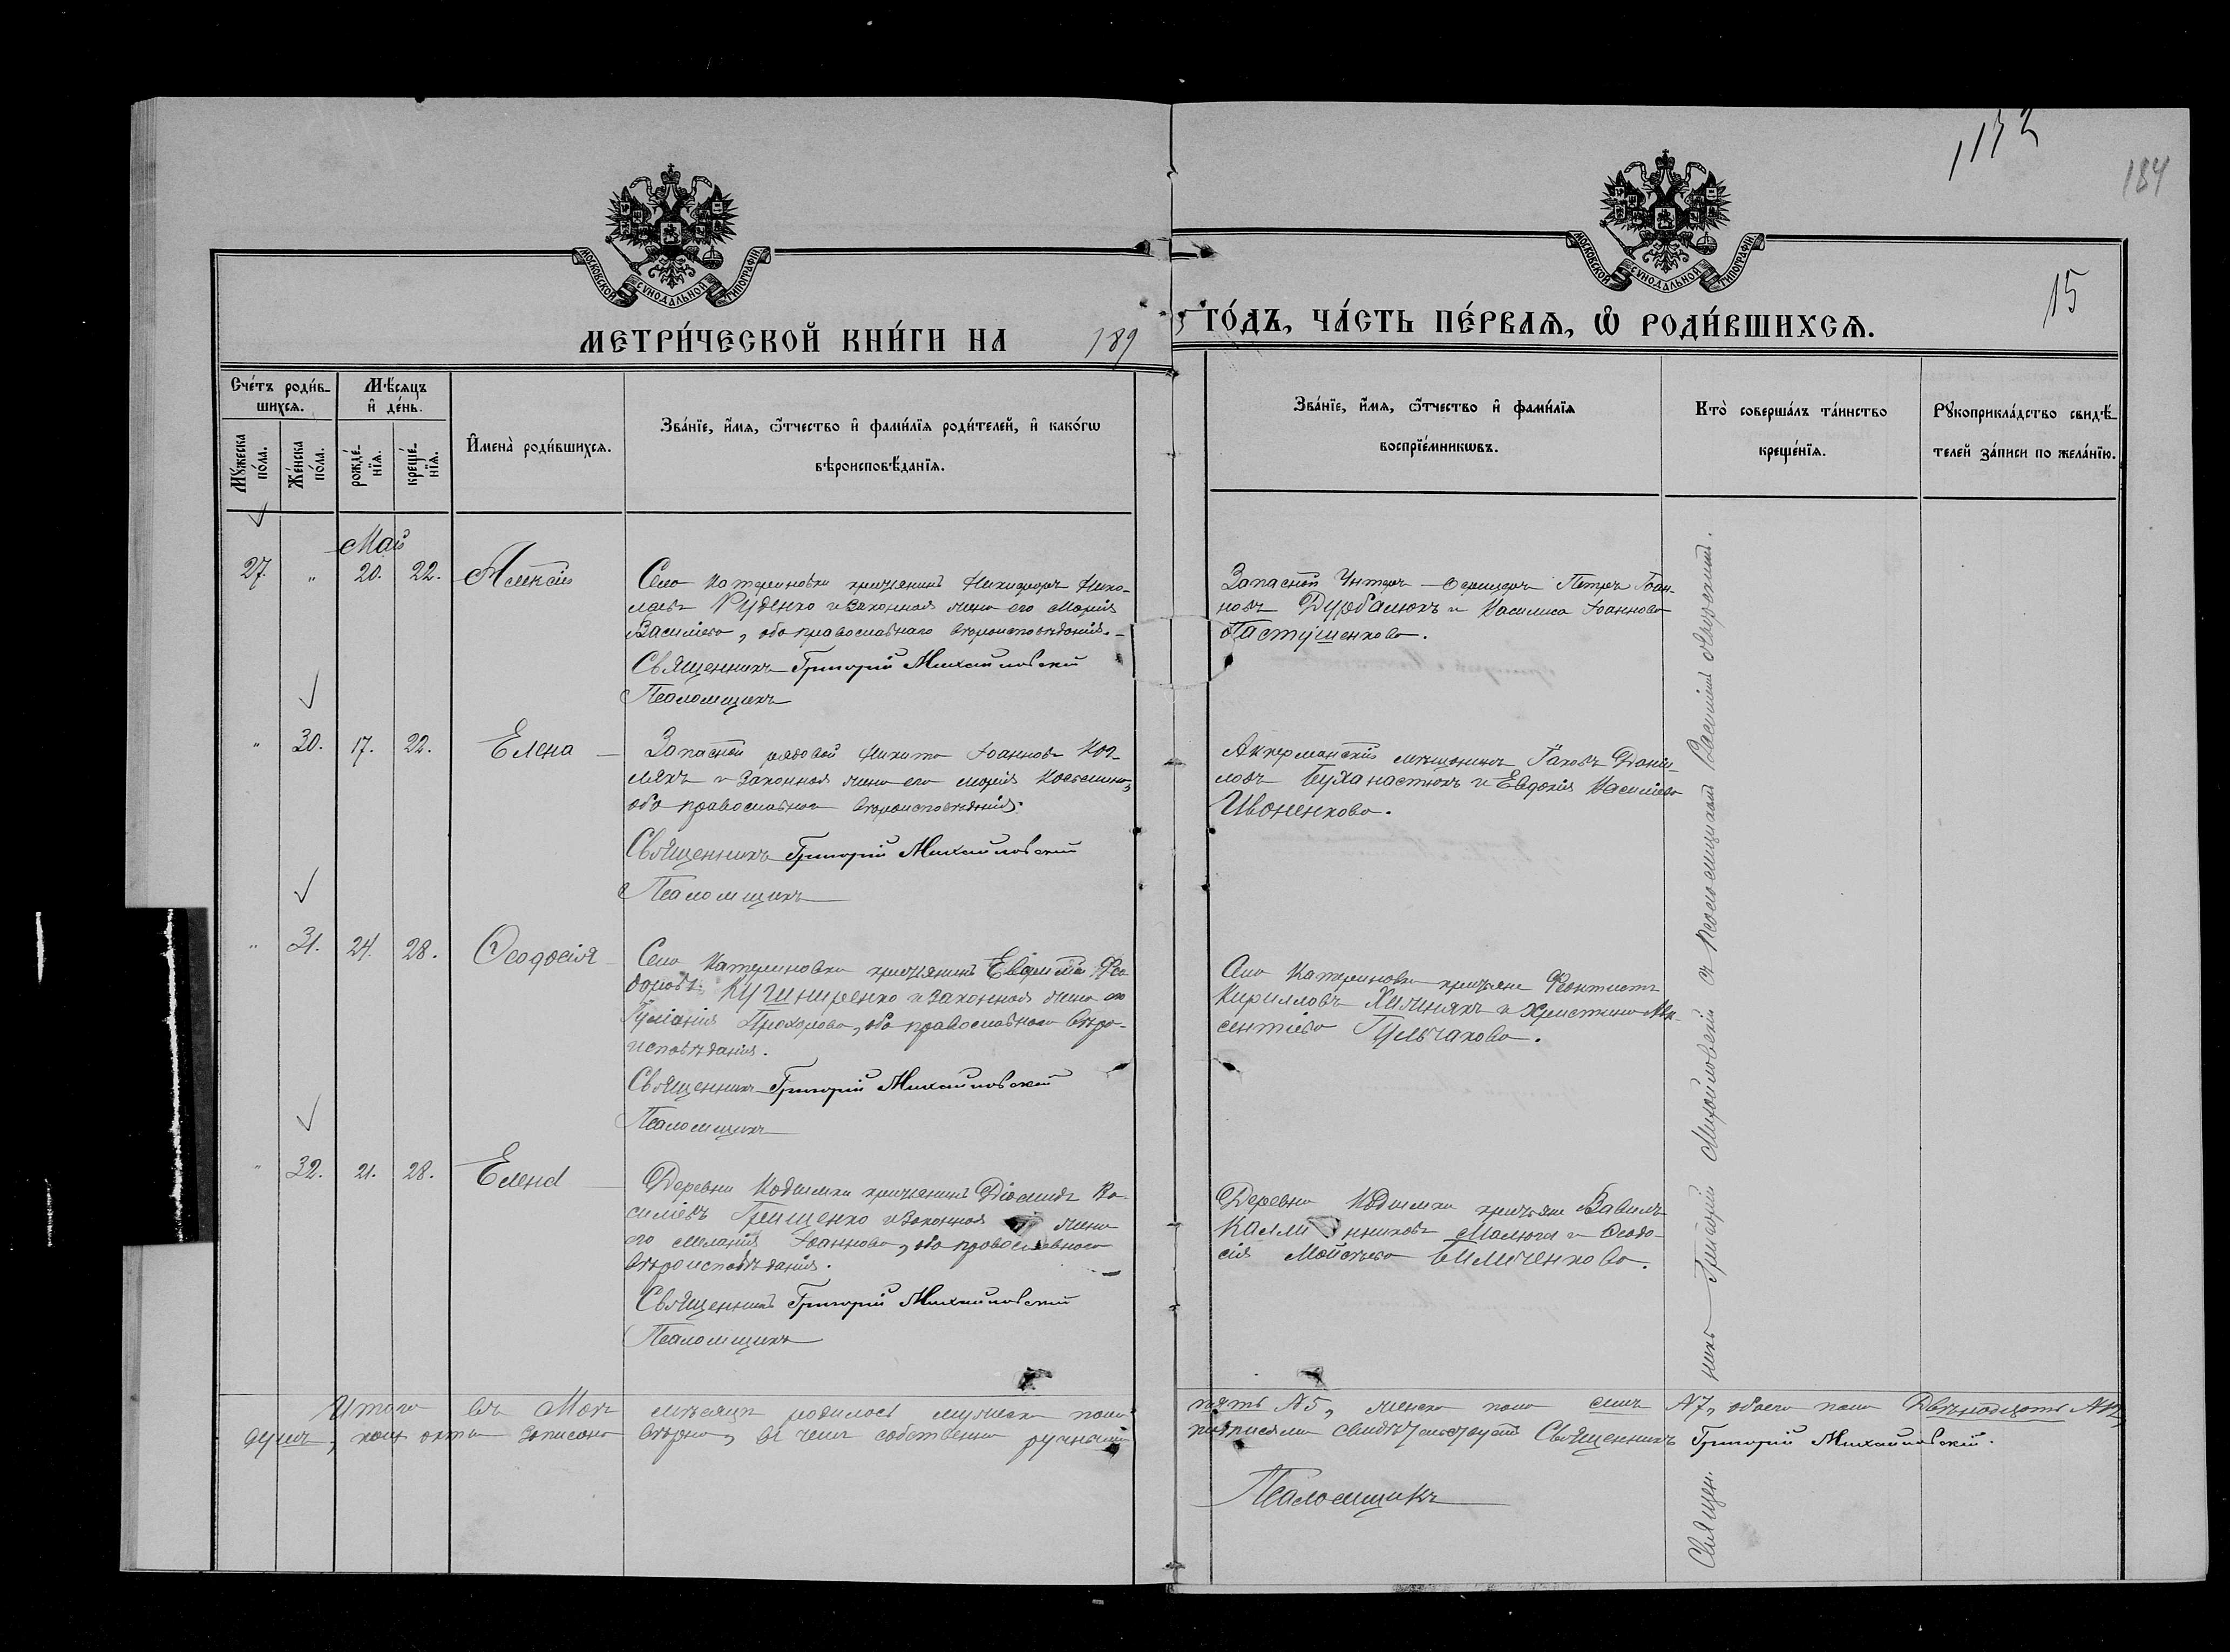 1132
184
15
МОСКОВСКОЙ СѴНОДАЛЬНОЙ ТИПОГРАФІИ
МОСКОВСКОЙ СѴНОДАЛЬНОЙ ТИПОГРАФІИ
МЕТРИ́ЧЕСКОЙ КНИ́ГИ НА 189
5 ГО́ДЪ, ЧА́СТЬ ПЕ́РВАѦ, Ѡ҆ РОДИ́ВШИХСѦ.
Сче́тъ роди́в-
шихсѧ.
Мꙋ́жеска по́ла.
Же́нска по́ла.
Мѣ́сѧцъ
и҆ де́нь.
рожде́-
нїѧ.
креще́-
нїѧ.
И҆мена̀ роди́вшихсѧ.
Зва́нїе, и҆́мѧ, ѻ҆́тчество и҆ фами́лїѧ роди́телей, и҆ како́гѡ
вѣроисповѣ́данїѧ.
Зва́нїе, и҆́мѧ, ѻ҆́тчество и҆ фами́лїѧ
воспрїе́мникѡвъ.
Кто̀ соверша́лъ та́инство
креще́нїѧ.
Рꙋкоприкла́дство свидѣ́-
телей за́писи по жела́нїю.
Май
27. " 20. 22. Алексій
Села Катериновки крестьянинъ Никифоръ Нико-
лаевъ Руденко и законная жена его Марія
Василіева, оба православнаго вѣроисповѣданія.
Священникъ Григорій Михайловскій
Псаломщикъ
Запасной Унтеръ-Офицеръ Петръ Іоан-
новъ Дурбалюкъ и Василиса Іоаннова
Пастушенкова.
" 30. 17. 22. Елена
Запасной рядовой Никита Іоанновъ
и законная жена его Марія
оба православнаго вѣроисповѣданія.
Священникъ Григорій Михайловскій
Псаломщикъ
Аккерманскій мѣщанинъ Іаковъ Дани-
ловъ и Евдокія Василіева
Ивоненкова.
" 31. 24. 28. Ѳеодосія
Села Катериновки крестьянинъ Евфимій Ѳео-
доровъ Кушниренко и законная жена его
Іуліанія Прохорова, оба православнаго вѣро-
исповѣданія.
Священникъ Григорій Михайловскій
Псаломщикъ
Села Катериновки крестьяне Ѳеоктистъ
Кирилловъ и Христина Ав-
сентіева Гульчакова.
" 32. 21. 28. Елена
Деревни Кодымки крестьянинъ Діомидъ Ва-
силіевъ Грищенко и законная жена
его Меланія Іоаннова, оба православнаго
вѣроисповѣданія.
Священникъ Григорій Михайловскій
Псаломщикъ
Деревни Кодымки крестьяне Вавилъ
Каллинниковъ Малюга и Ѳеодо-
сія Моисѣева
Священникъ Григорій Михайловскій съ псаломщикомъ Василіемъ
Итого въ Маѣ мѣсяцѣ родилось мужеска пола пять №5, женска пола семь №7, обоего пола Двѣнадцать №12
душъ, акты записаны вѣрно, въ чемъ собственноручными подписями свидѣтельствуемъ Священникъ Григорій Михайловскій.
Псаломщикъ